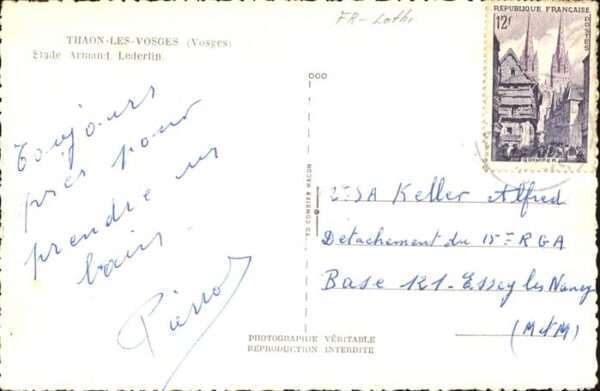 FR-Loth.
THAON-LES-VOSGES (Vosges)
Stade Armand Lederlin.
RÉPUBLIQUE FRANÇAISE
12f
POSTES
QUIMPER
Toujours
prêt pour
prendre un
bain.
Pierrot
TO COMBIER MACON
2e SA Keller Alfred
Détachement du 15ème RGA
Base 121 - Essey les Nancy
(M&M)
PHOTOGRAPHIE VÉRITABLE
REPRODUCTION INTERDITE